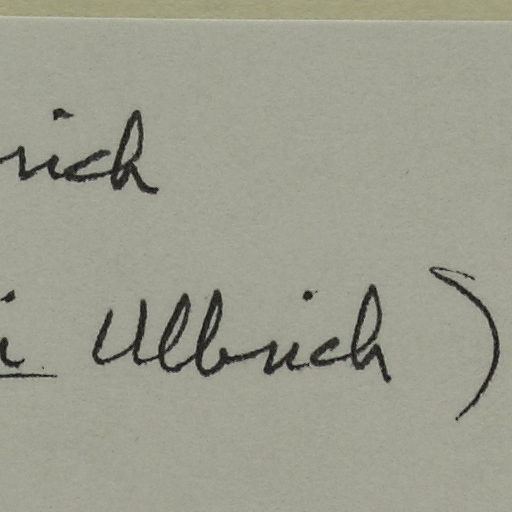 rich
i Ullbrich )